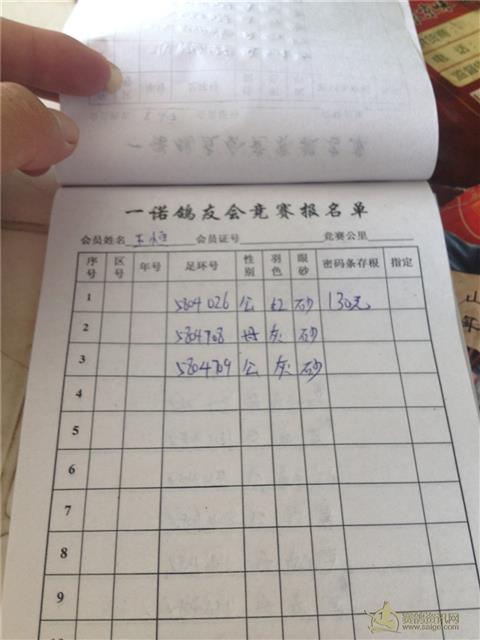 一诺鸽友会竞赛报名单
会员姓名 会员证号 竞赛公里
序号 区号 年号 足环号 性别 羽色 眼砂 密码条存根 指定
1 5804026 公 红 砂 130元
2 5804708 母 灰 砂
3 5804709 公 灰 砂
4
5
6
7
8
9
电话
赛鸽资讯网
www.saige.com